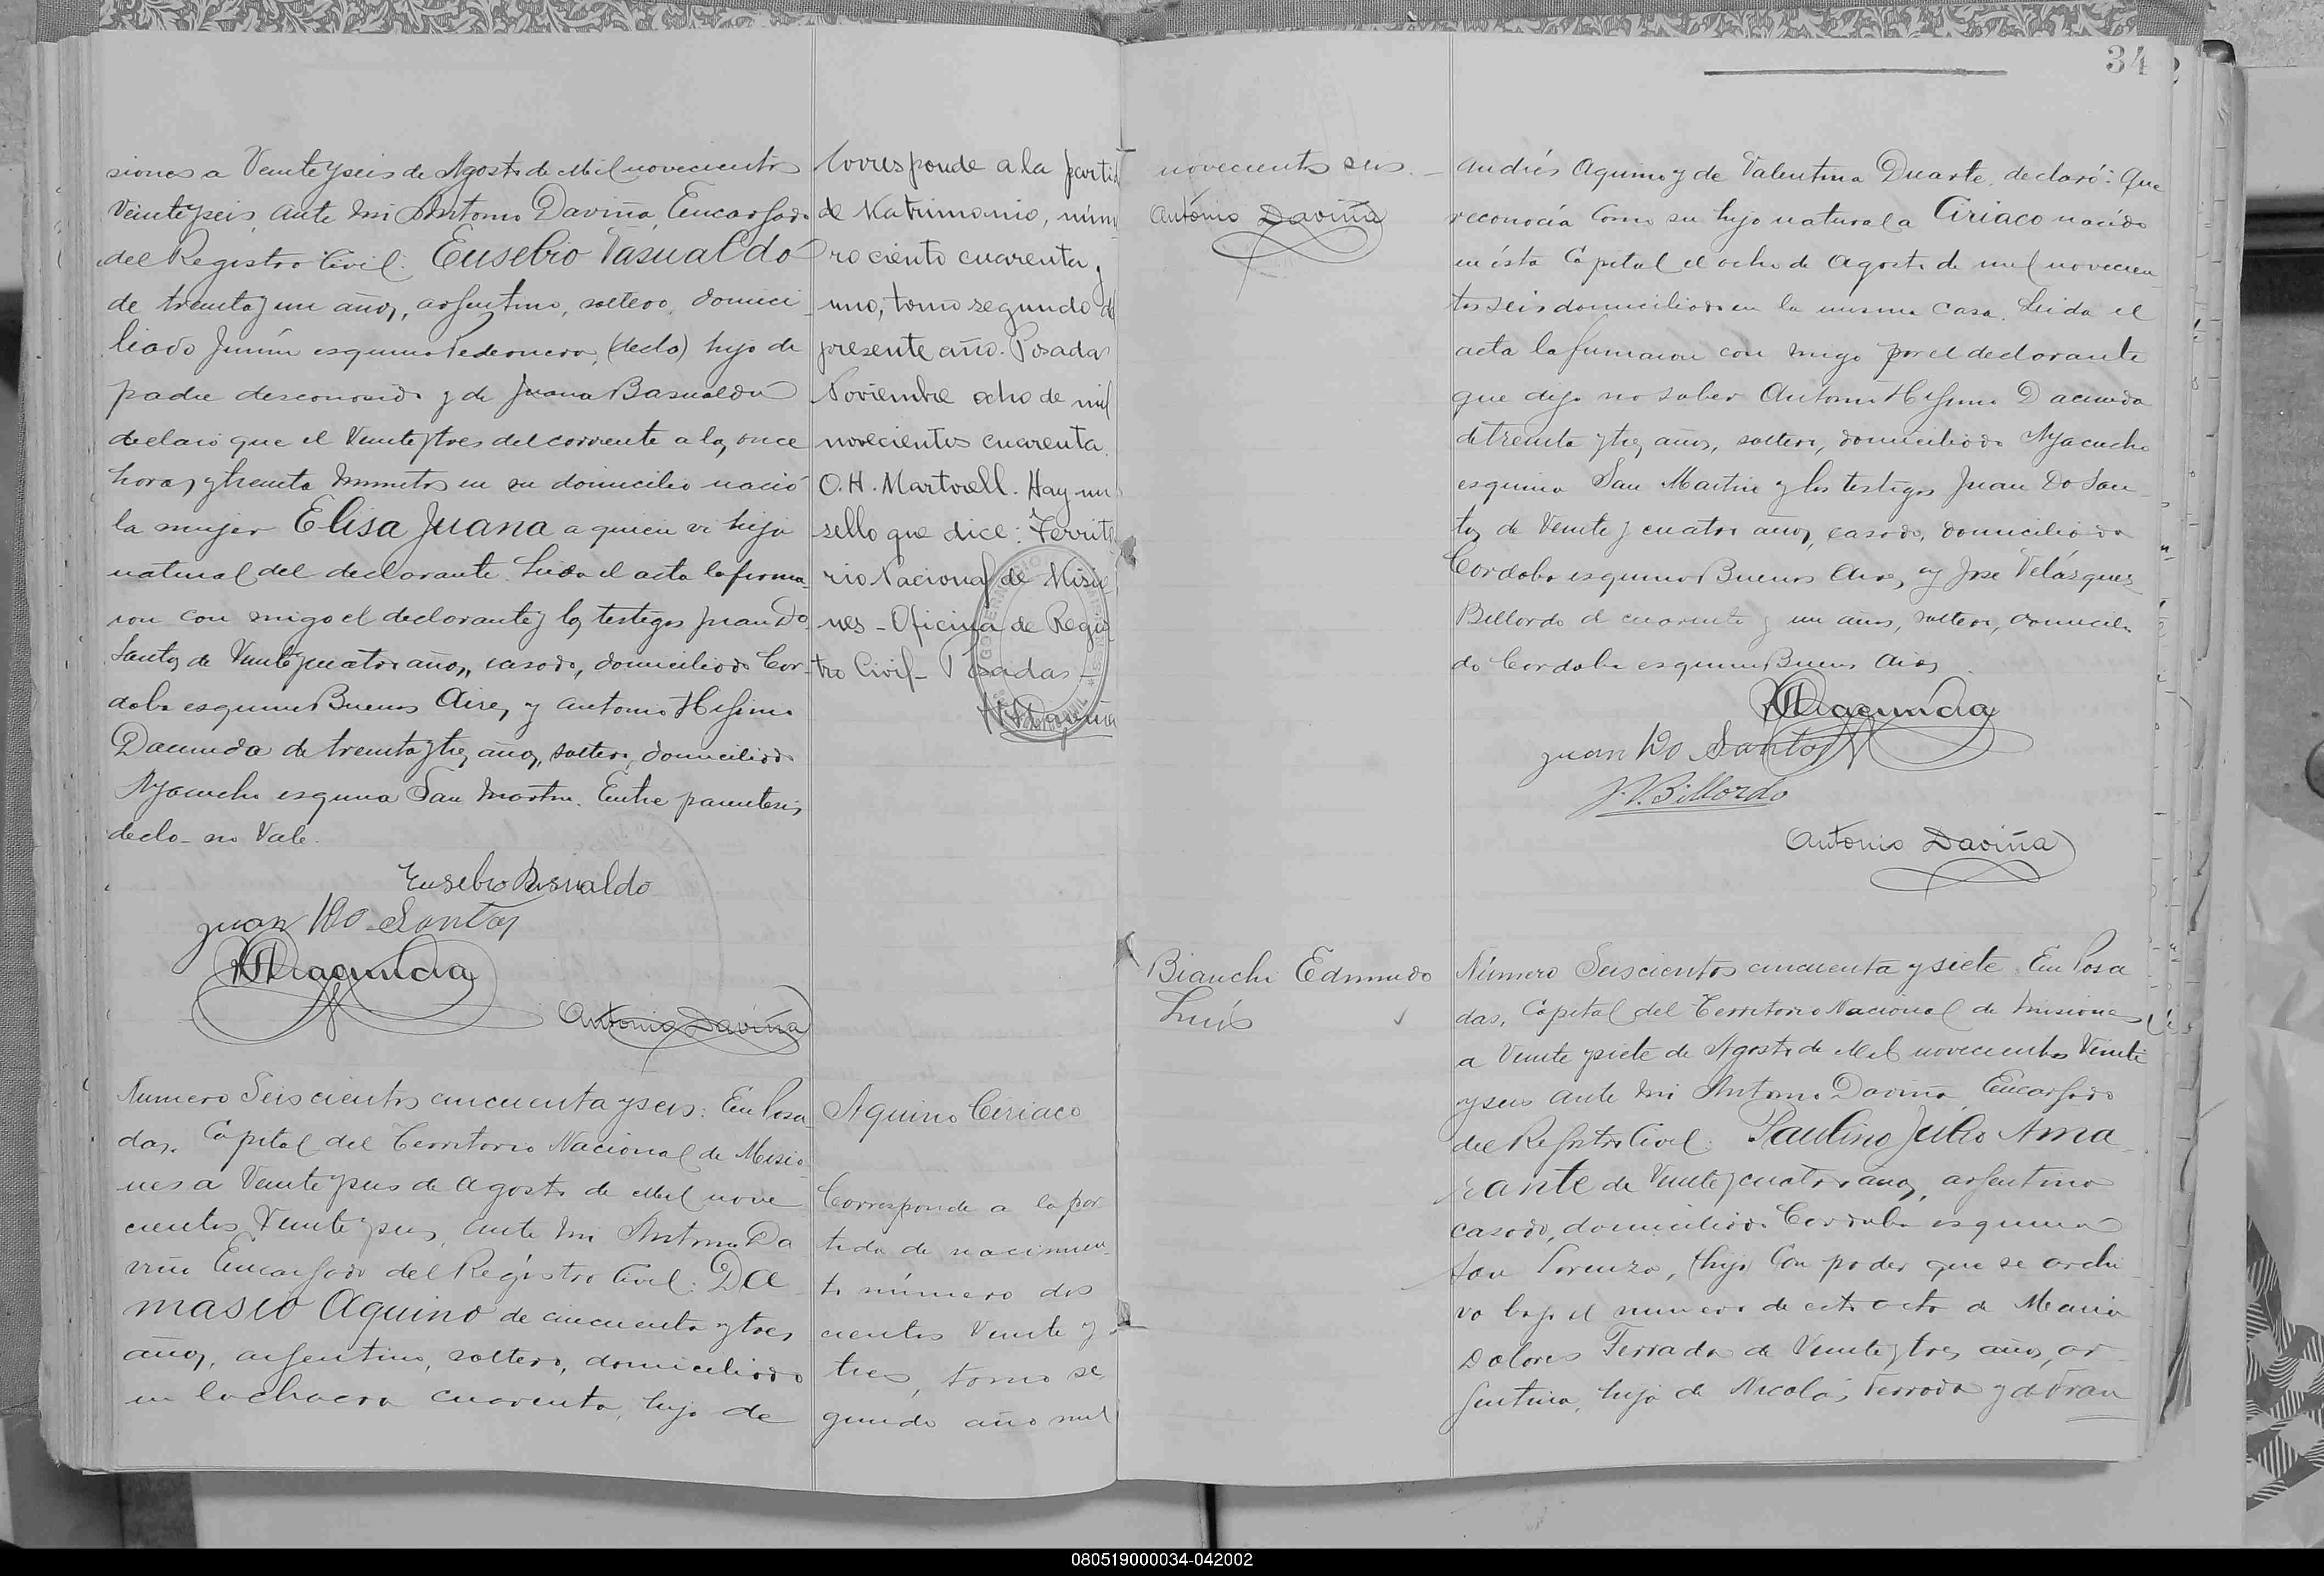 siones a Veinte y seis de Agosto de Mil novecientos
Veinte y seis, ante mi Antonio Daviña, Encargado
del Registro Civil: Eusebio Vasualdo
de treinta y un años, argentino, soltero, domici
liado Junin esquina Pedernera, (declo) hijo de
padre desconocido y de Juana Basualdo
declaró que el Veinte y tres del corriente a las once
horas y treinta minutos en su domicilio nació
la mujer Elisa Juana a quien vi hija
natural del declarante. Leida el acta la firma
ron con migo el declarante y los testigos Juan Do
Santos de Veinte y cuatro años, casado, domiciliado Cor-
doba esquina Buenos Aires y Antonio Higinio
Dacunda de treinta y tres años, soltero, domiciliado
Ayacucho esquina San Martin. Entre parentesis
declo- no Vale.
Eusebio Basualdo
Juan Do Santos
Dacunda
Antonio Daviña
Numero Seiscientos cincuenta y seis: En Posa
das, Capital del Territorio Nacional de Misio
nes a Veinte y seis de Agosto de Mil nove
cientos Veinte y seis, ante mi Antonio Da
viña Encargado del Registro Civil: Da
masio Aquino de cincuenta y tres
años, argentino, soltero, domiciliado
en la chacra cuarenta, hijo de
Corresponde a la partid
de Matrimonio, núme
ro ciento cuarenta y
uno, tomo segundo del
presente año. Posadas
Noviembre ocho de mil
novecientos cuarenta.
O. H. Martvell. Hay un
sello que dice: Territo
rio Nacional de Misio
nes - Oficina de Regis
tro Civil - Posadas -
Aquino Ciriaco
Corresponde a la par
tida de nacimien
to número dos
cientos Veinte y
tres, tomo se
gundo año mil
34
novecientos seis. -
Antonio Daviña
Andrés Aquino y de Valentina Duarte, declaró: Que
reconocía como su hijo natural a Ciriaco nacido
en ésta Capital el ocho de Agosto de mil novecien
tos seis domiciliado en la misma casa. Leida el
acta la firmaron con migo por el declarante
que dijo no saber Antonio Higinio Dacunda
de treinta y tres años, soltero, domiciliado Ayacucho
esquina San Martin y los testigos Juan Do San
tos de Veinte y cuatro años, casado, domiciliado
Cordoba esquina Buenos Aires y José Velázquez
Billordo de cuarenta y un años, soltero, domicilia
do Cordoba esquina Buenos Aires
Dacunda
Juan Do Santos
J. V. Billordo
Antonio Daviña
Bianchi Edmundo
Luís
Número Seiscientos cincuenta y siete: En Posa
das, Capital del Territorio Nacional de Misiones
a Veinte y siete de Agosto de Mil novecientos Veinte
y seis ante mi Antonio Daviña Encargado
del Registro Civil: Paulino Julio Ama
rante de Veinte y cuatro años, argentino
casado, domiciliado Cordoba esquina
San Lorenzo, (hijo Con poder que se archi
vo bajo el numero de esta acta de Maria
Dolores Terrada de Veinte y tres años, ar
gentina, hija de Nicolás Terrada y de Fran
080519000034-042002